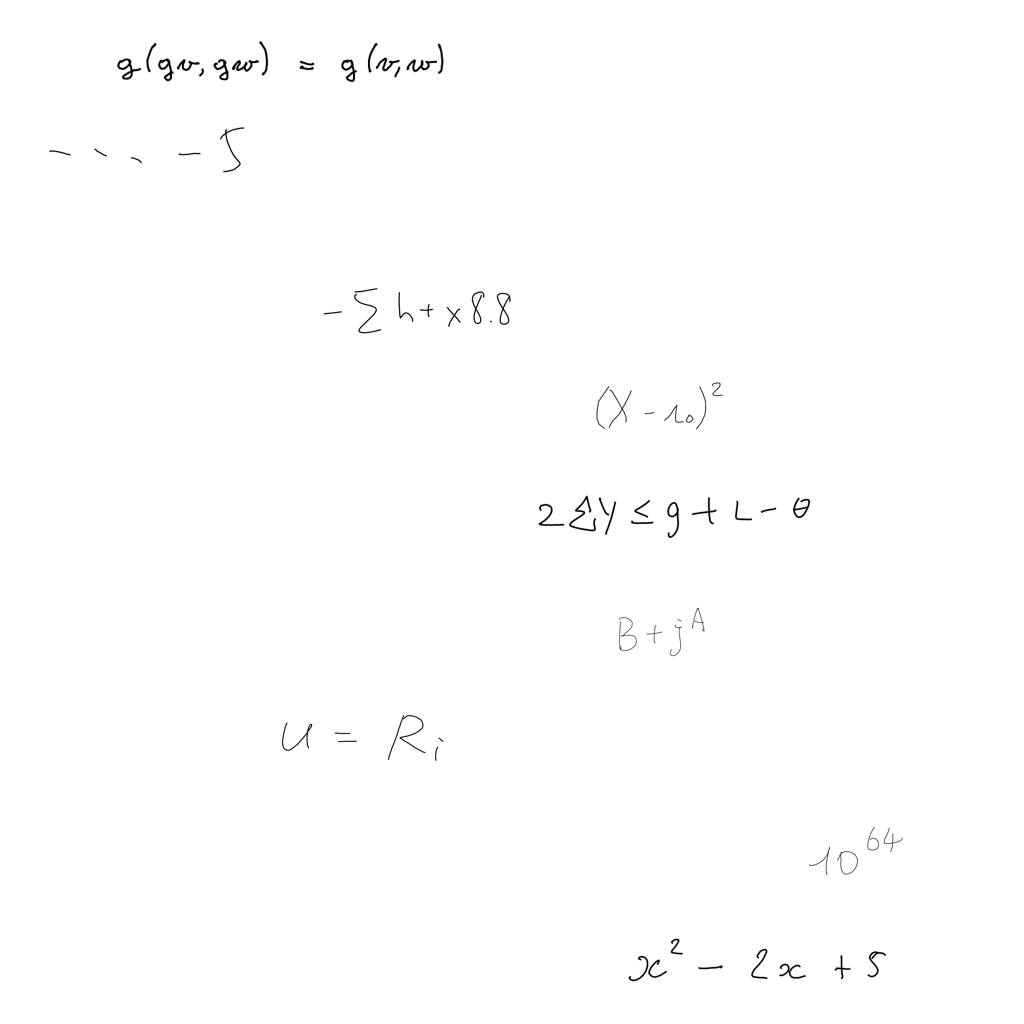 g(gv, gw) = g(v, w)
- - - . - 5
-∑h+x8.8
(X-r₀)²
2∑y≤g+L-θ
B+jᴬ
u = Rᵢ
10⁶⁴
x² - 2x + 5